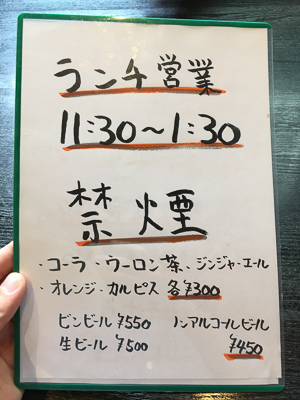 ランチ営業
11:30～1:30
禁煙
・コーラ・ウーロン茶・ジンジャーエール
・オレンジ・カルピス 各¥300
ビンビール ¥550 ノンアルコールビール
生ビール ¥500 ¥450